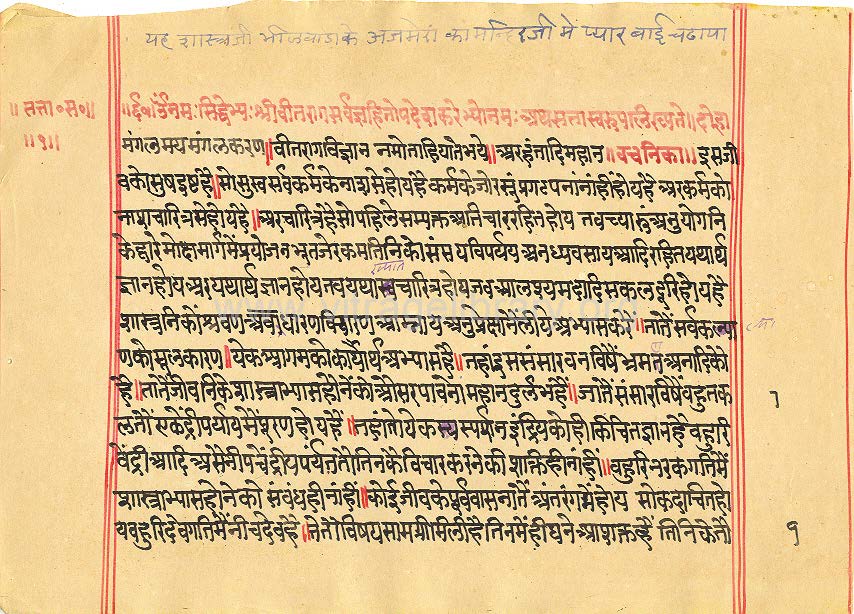 यह शास्त्रजी भीलवाडाके अजमेरां का मन्दिरजी मे प्यार बाई चढाया
॥ सत्ता०स०॥
॥१॥
॥ॐनमःसिद्धेभ्यःश्रीवीतरागसर्वज्ञहितोपदेशकरेभ्योनमःअथसत्तास्वरूपलिख्यते॥दोहा
मंगलमयमंगलकरण॥वीतरागविज्ञान नमोताहियातेभये॥अरहंतादिमहान॥वचनिका॥इसजी
वकोसुषइष्टहै॥सोसुखसर्वकर्मकेनाशसेहोयहैकर्मकेजोरसंप्रगटपनांनांहींहोयहैअरकर्मको
नाशचारित्रसेहोयहै॥अरचारित्रहैसोपहिलेसम्यक्तअतिचाररहितहोय तवच्यारुंअनुयोगनि
केद्वारिमोक्षमार्गमेंप्रयोजनभूतजेरकमतिनिकोसंसयविपर्ययअनध्यवसायआदिरहितयथार्थ
ज्ञानहोयअरयथार्थज्ञानहोयतवयथाख्यातचारित्रहोयजवआलश्यमदादिसकलदूरिहोयहै
शास्त्रनिकोश्रवणअवधारणविचारणआम्नायअनुप्रेक्षानैंलीयेअभ्यासकरै॥तातैंसर्वकल्या
णकोमूलकारण॥येकआगमकोकार्यार्थअभ्यासहै॥तहांइससंसारवनविषैंभ्रमतअनादिकेको
है॥तातैजीवनिकेशास्त्राभ्यासहोनेंकोऔसरपावेनोमहानदुर्लभहै॥जातैंसंसारविषैंवहुतक
लतौंएकेंद्रीपर्यायमेंपूरणहोयहै॥तहांतोयेकस्पर्शनइंद्रियकोहीकिंचितज्ञानहैवहुरि
वेंद्रीआदिअसेनीपचेंद्रीयपर्यंततौतिनकैविचारकरनेकीशक्तिहीनांहीं॥वहुरिनरकगतिमें
शास्त्राभ्पासहोनेकोसंवंधहीनांहीं॥कोईजीवकेपूर्ववासनातैंअंतरंगमेंहोय सोकदाचितहो
यवहुरिदेवगतिमेंनीचदेवहै॥तेतौविषयसामग्रीमिलीहैतिनमेंहीघनेआशक्तव्है तिनिकेतौ
१
www.vitragelibrary.org